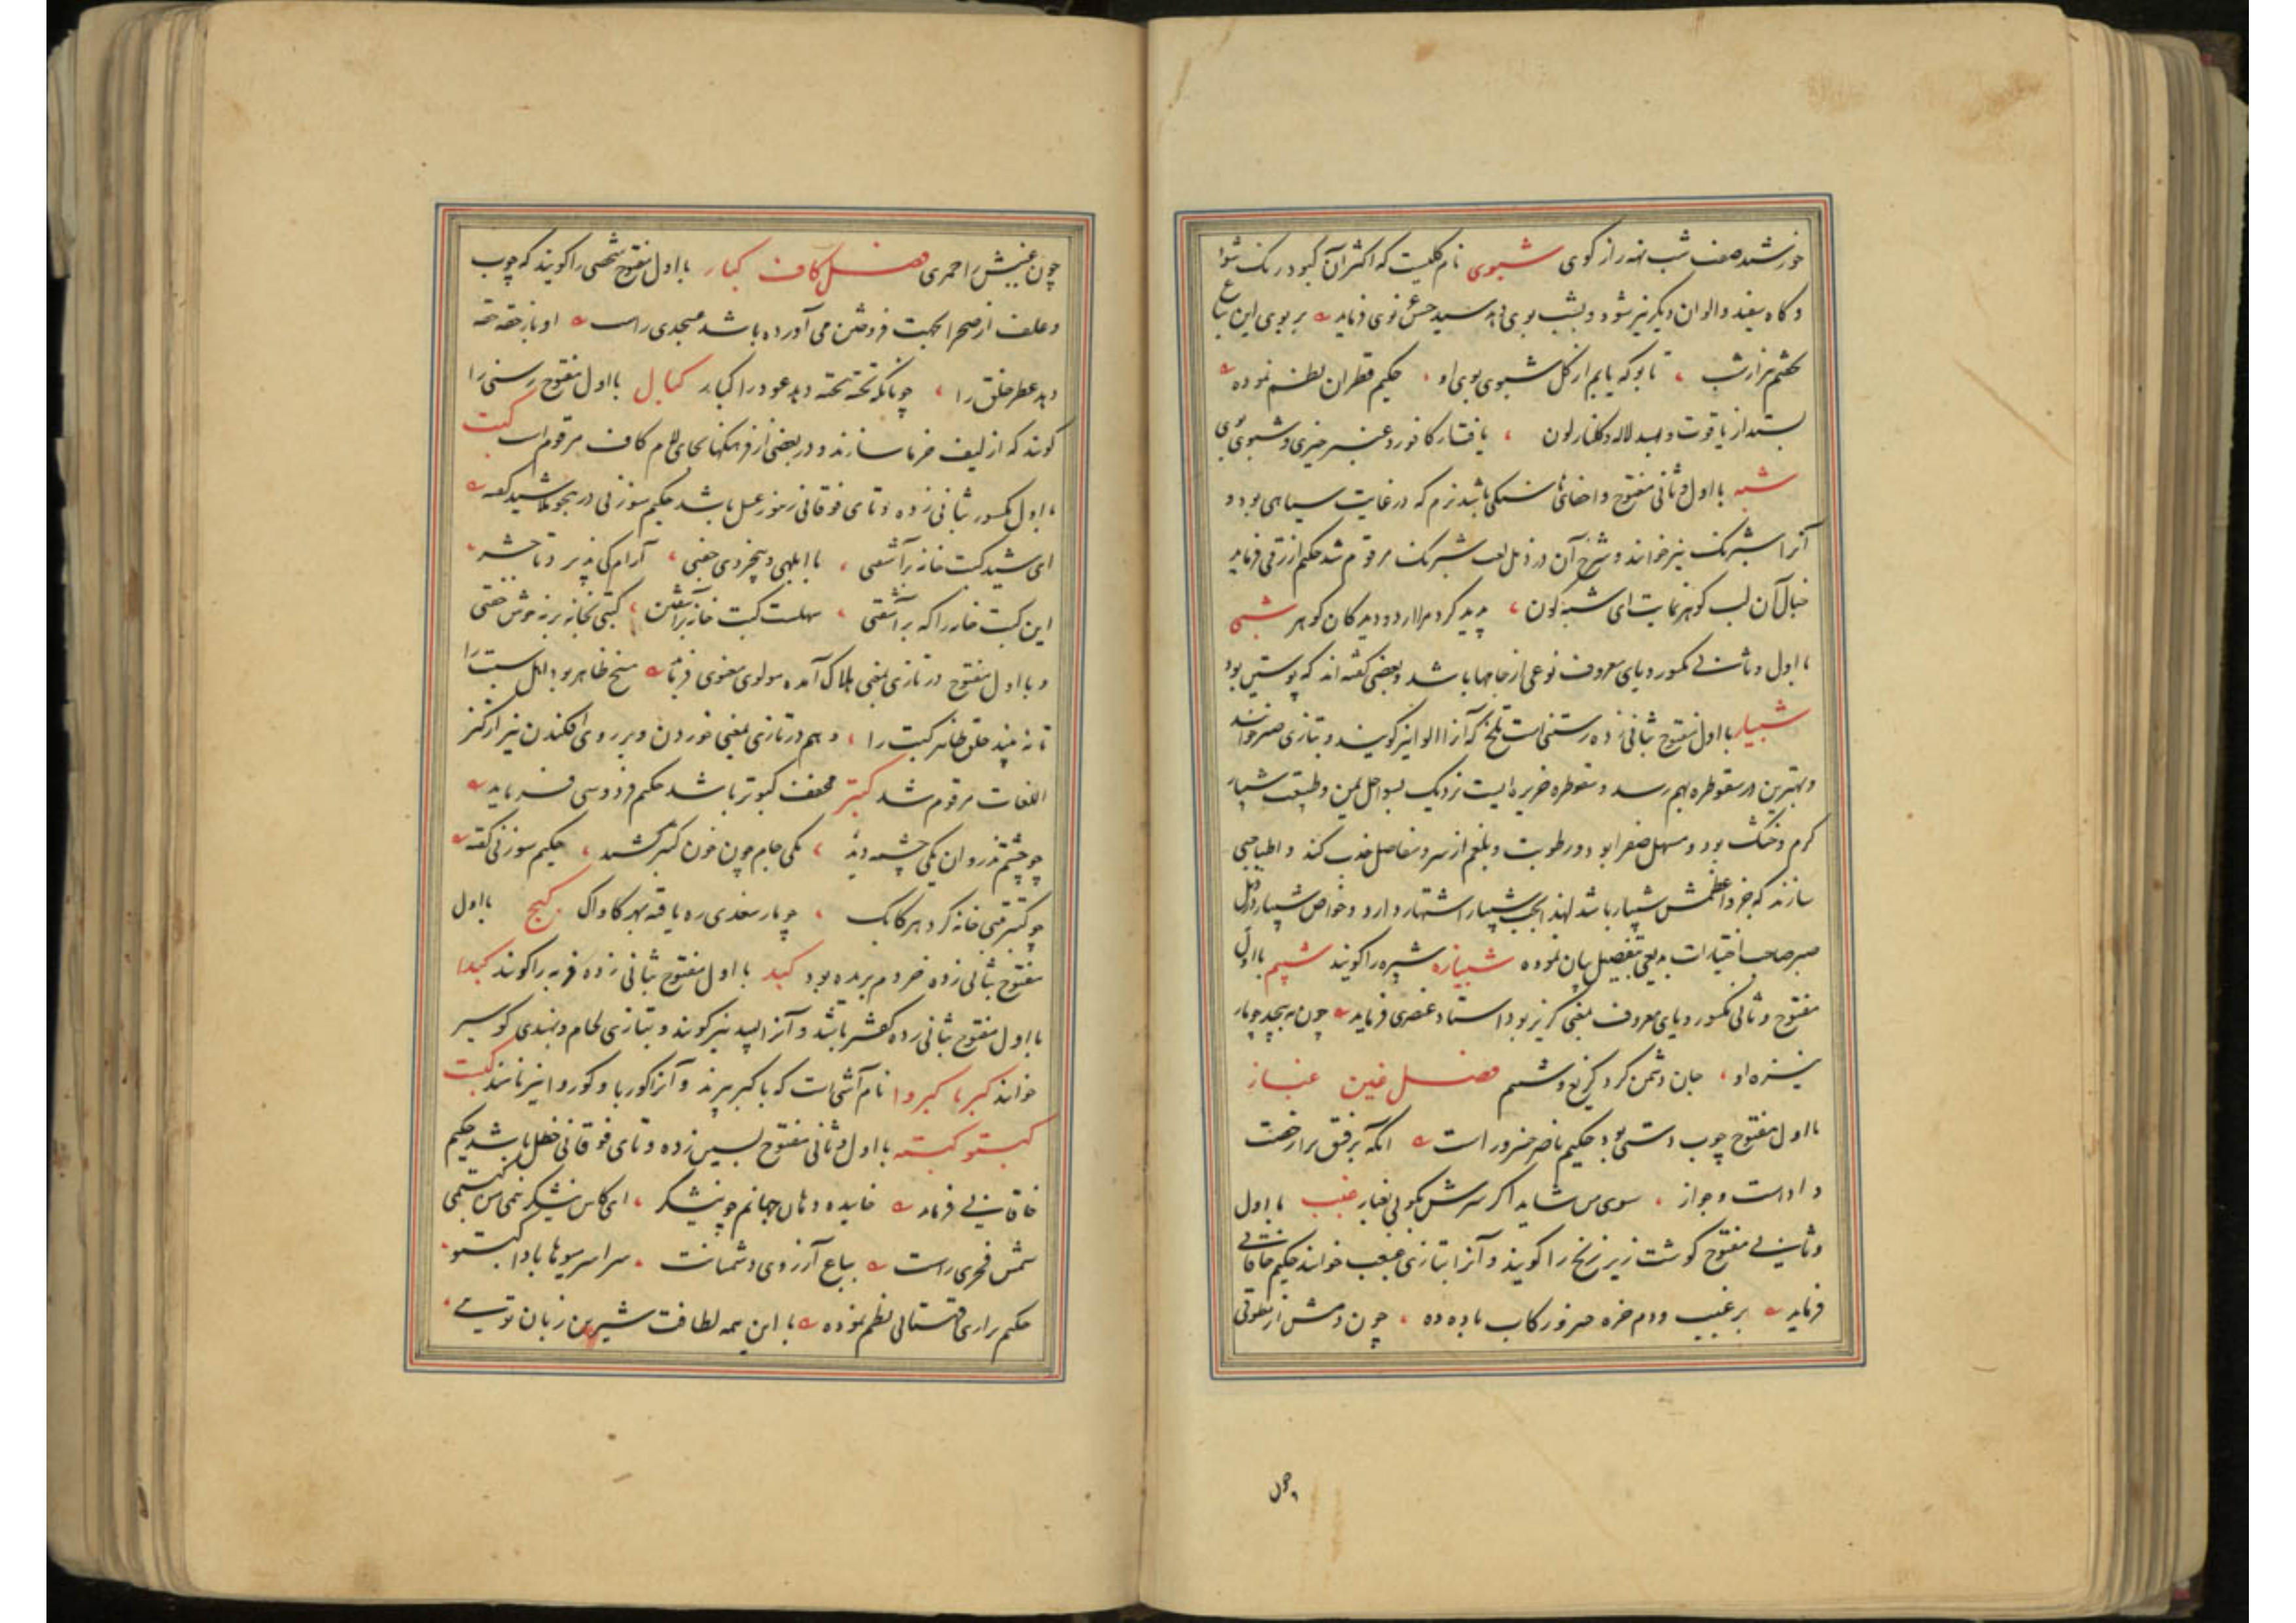 خورشید صفت شب نهد راز کوی شبوی نام کلیست که اکثر آن کبود رنک شود
و کاه سفید و الوان دیکر نیز شود و بشب بوی دهد سید حسن غزنوی فرماید بر بوی این
بخشم هزار شب تا بو که یابم از کل شبوی بوی او حکیم قطران نظم نموده
بستد از یاقوت و بسد لاله و کلنار لون یافت از کافور و عنبر خیری و شبوی بوی
شبه با اول و ثانی مفتوح و اخفای ها سنکی باشد نرم که در غایت سیاهی بود و
آنرا شبرنک نیز خوانند و شرح آن در ذیل لغت شبرنک مرقوم شد حکیم ازرقی فرماید
خیال آن لب کوهر نمایت ای شبه کون پدید کرد مرا از دو دیدکان کوهر شبی
با اول و ثانی مکسور و یای معروف نوعی از جامها باشد و بعضی کفته اند که پوستین بود
شبیار با اول مفتوح بثانی زده رستنی است تلخ که آنرا الوا نیز کویند و بتازی صبر خوانند
و بهترین در سقوطره بهم رسد و سقوطره جزیره ایست نزدیک بسواحل یمن و طبیعت شبیار
کرم و خشک بود و مسهل صفرا بود و رطوبت و بلغم از سر و مفاصل جذب کند و اطبا حبی
سازند که جزو اعظمش شبیار باشد لهذا بحب شبیار اشتهار دارد و خواص شبیار در ذیل
صبر صاحب اختیارات بدیعی بتفصیل بیان نموده شبیازه شبپره را کویند شپم با اول
مفتوح و ثانی مکسور و یای معروف بمعنی کریز بود استاد عنصری فرماید چون به پیچد چو مار
نیزه او جان دشمن کرد کریغ و شپم فصل غین غباز
با اول مفتوح چوب دستی بود حکیم ناصر خسرو راست انکه برفق بر ارخمت
داد است و جواز سوی من شاید اگر سرش بکوبی بغباز غبب با اول
و ثانی مفتوح کوشت زیر زنخ را کویند و آنرا بتازی غبغب خوانند حکیم خاقانی
فرماید بر غبب و دم خره خیز و رکاب باده ده چون دمش از مطوقی
چون
چون غببش ز احمری فصل کاف کبار با اول مفتوح شخصی را کویند که چوب
و علف از صحرا بجهت فروختن می آورده باشد عسجدی راست او باز حقه حقه
دهد عطر خلق را چونانکه تخته تخته دهد عود را کبار کبال با اول مفتوح رسنی را
کویند که از لیف خرما سازند و در بعضی از فرهنکها بجای لام کاف مرقوم است کبت
با اول مکسور بثانی زده و تای فوقانی زنبور عسل باشد حکیم سوزنی در هجو شید کفته
ای شید کبت خانه برآشفتی با ابلهی و بیخردی جفتی آرام کی پذیر د تا حشر
این کبت خانه را که برآشفتی سهلست کبت خانه برآشفتن کبتی بخانه بر نه خوش خفتی
و با اول مفتوح در تازی بمعنی هلاک آمده مولوی معنوی فرماید مسخ ظاهر بود اهل سبت را
تا به بیند خلق ظاهر کبت را و هم در تازی بمعنی خوردن و بر روی افکندن نیز از کنز
اللغات مرقوم شد کبتر مخفف کبوتر باشد حکیم فردوسی فرماید
چو چشم تذروان یکی چشمه دید یکی جام چون خون کبتر کشید حکیم سوزنی کفته
چو کبتر متی خانه کرد هر کابک چو مار سغدی ره یافته بهر کاواک کبج با اول
مفتوح بثانی زده خر دم بریده بود کبد با اول مفتوح بثانی زده فربه را کویند کبدا
با اول مفتوح بثانی زده کفشیر باشد و آنرا لحیم نیز کویند و بتازی لحام و بهندی کوسیر
خوانند کبربا کبروا نام آشی است که با کبر بپزند و آنرا کوربا و کوروا نیز نامند کبست
کبستو کبسته با اول و ثانی مفتوح بسین زده و تای فوقانی حنظل باشد حکیم
خاقانی فرماید خاییده دهان جهانم چو نیشکر ای کاش نیشکر نیمی من کبستمی
شمس فخری راست بباغ آرزوی دشمنانت سراسر میوها بادا کبستو
حکیم نزاری قهستانی نظم نموده با این همه لطافت شیرین زبان توئی